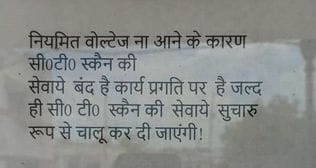 नियमित वोल्टेज ना आने के कारण
सी0टी0 स्कैन की
सेवाये बंद है कार्य प्रगति पर है जल्द
ही सी0 टी0 स्कैन की सेवाये सुचारु
रूप से चालू कर दी जाएंगी!